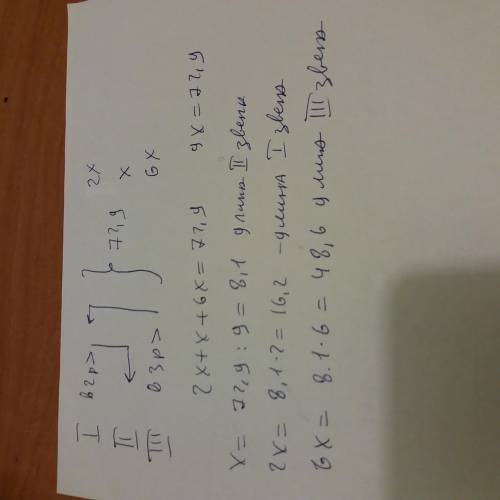 I в 2р> 2x
II 72,9 x
III в 3р> 6x
2x+x+6x=72,9 9x=72,9
x= 72,9:9=8,1 длина II звена
2x= 8,1·2=16,2 -длина I звена
6x= 8.1·6=48,6 длина III звена